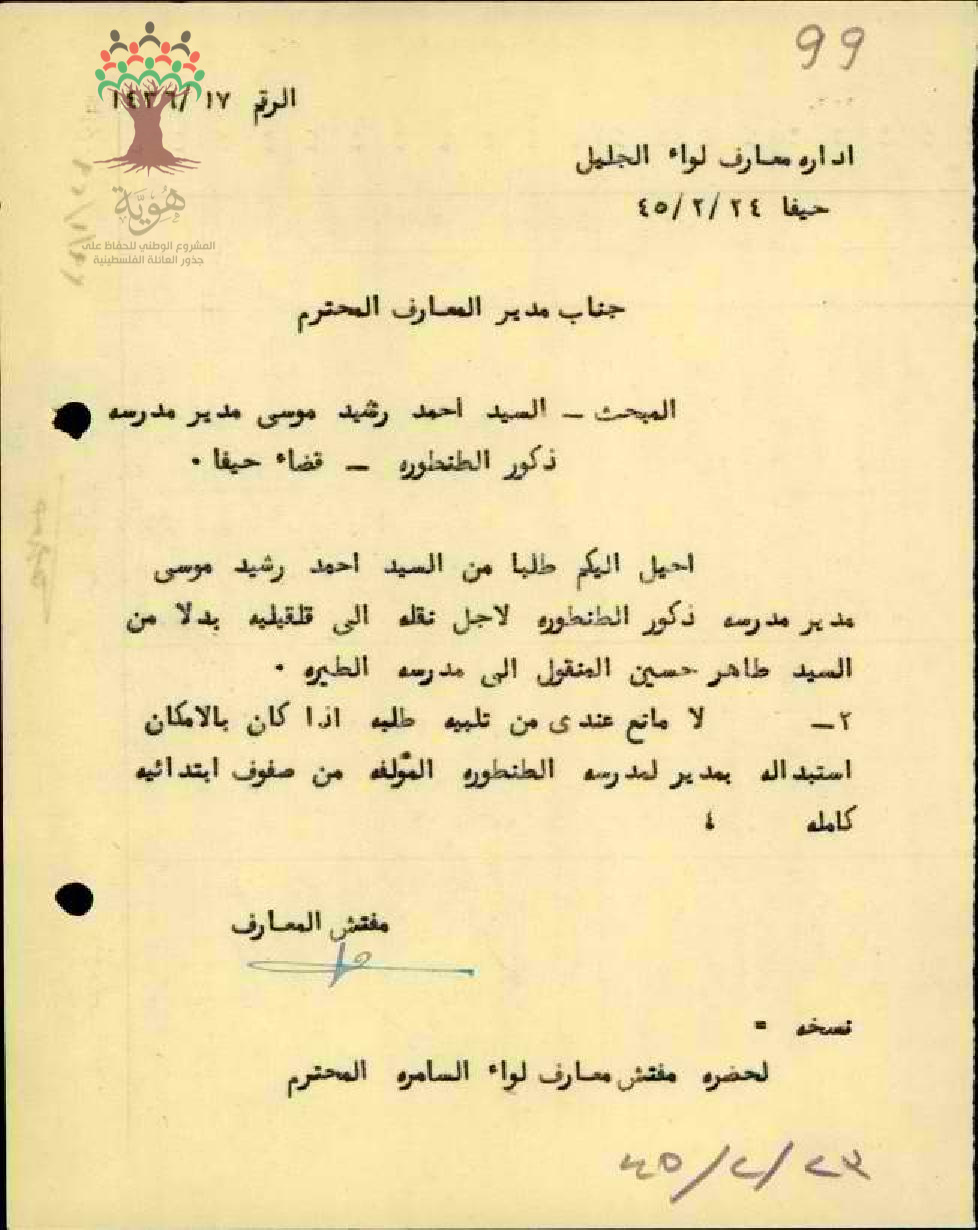 99
الرقم ١٧/
اداره معارف لواء الجليل
حيفا ٢٤/٢/٤٥
هُوِيَّة
المشروع الوطني للحفاظ على
جذور العائلة الفلسطينية
جناب مدير المعارف المحترم
المبحث ـ السيد احمد رشيد موسى مدير مدرسه
ذكور الطنطوره ـ قضاء حيفا ٠
احيل اليكم طلبا من السيد احمد رشيد موسى
مدير مدرسه ذكور الطنطوره لاجل نقله الى قلقيليه بدلا من
السيد طاهر حسين المنقول الى مدرسه الطيره ٠
٢ـ لا مانع عندى من تلبيه طلبه اذا كان بالامكان
استبداله بمدير لمدرسه الطنطوره المؤلفه من صفوف ابتدائيه
كامله ٤
مفتش المعارف
نسخه =
لحضره مفتش معارف لواء السامره المحترم